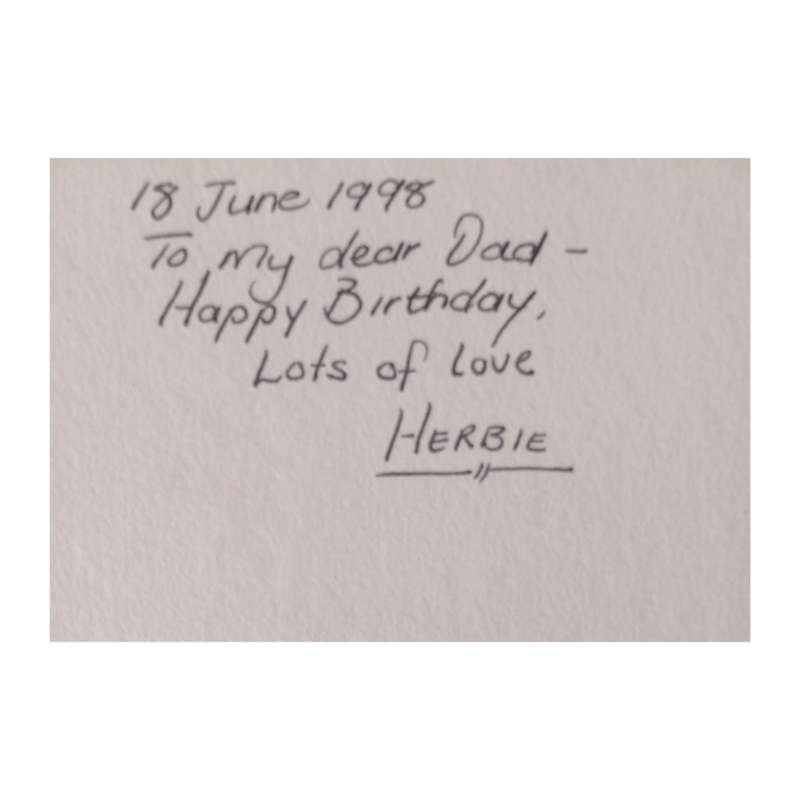 18 June 1998
To my dear Dad -
Happy Birthday,
Lots of love
HERBIE